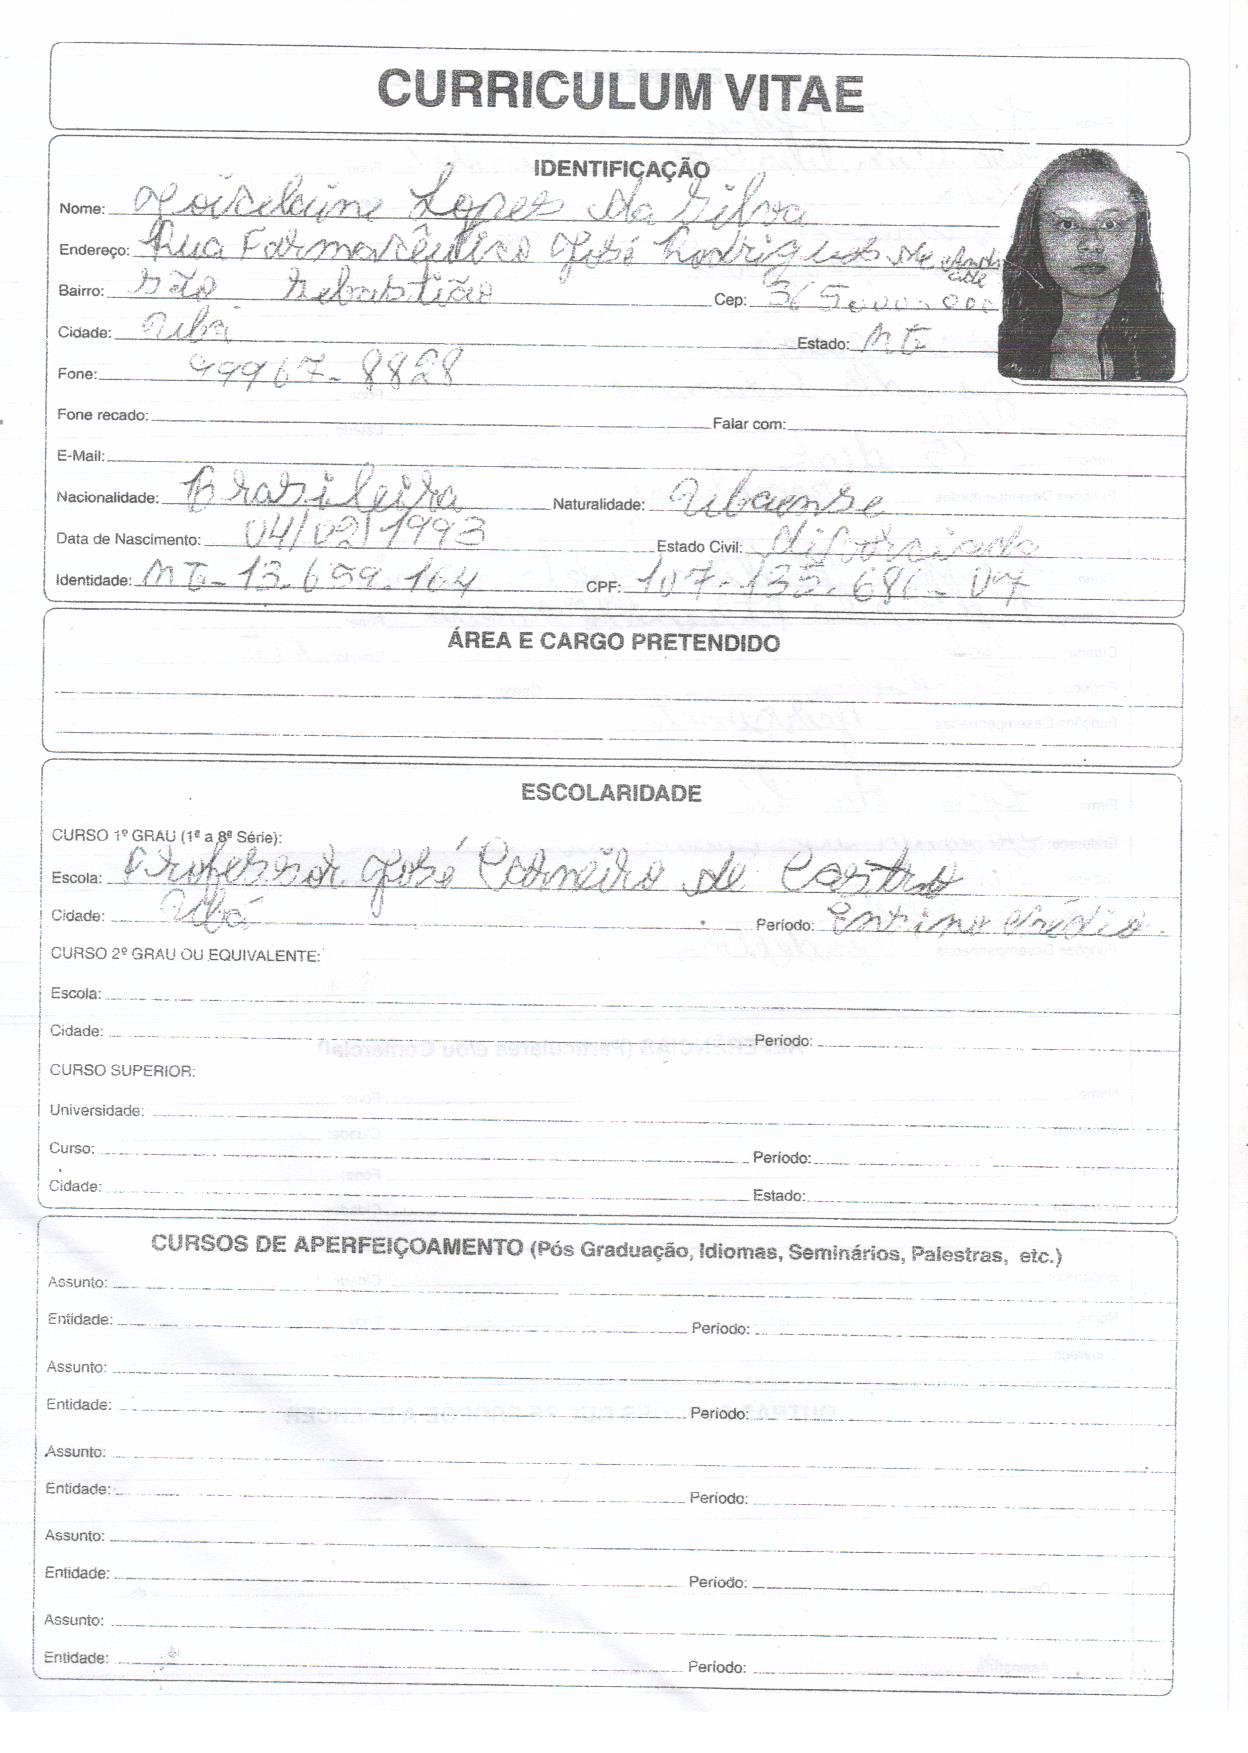 CURRICULUM VITAE
IDENTIFICAÇÃO
Nome: Joicelaine Lopes da Silva
Endereço: Rua Farmacêutico José Rodrigues de Andrade
Bairro: São Sebastião Cep: 365000-000
Cidade: Ubá Estado: MG
Fone: 99967-8828
Fone recado: Falar com:
E-Mail:
Nacionalidade: Brasileira Naturalidade: Ubaense
Data de Nascimento: 04/02/1993 Estado Civil:
Identidade: MG-13.659.164 CPF: 107-135.686-07
ÁREA E CARGO PRETENDIDO
ESCOLARIDADE
CURSO 1º GRAU (1ª a 8ª Série):
Escola: Professor José Carneiro de Castro
Cidade: Ubá Período: Entino Médio
CURSO 2º GRAU OU EQUIVALENTE:
Escola:
Cidade: Período:
CURSO SUPERIOR:
Universidade:
Curso: Período:
Cidade: Estado:
CURSOS DE APERFEIÇOAMENTO (Pós Graduação, Idiomas, Seminários, Palestras, etc.)
Assunto:
Entidade: Período:
Assunto:
Entidade: Período:
Assunto:
Entidade: Período:
Assunto:
Entidade: Período:
Assunto:
Entidade: Período: